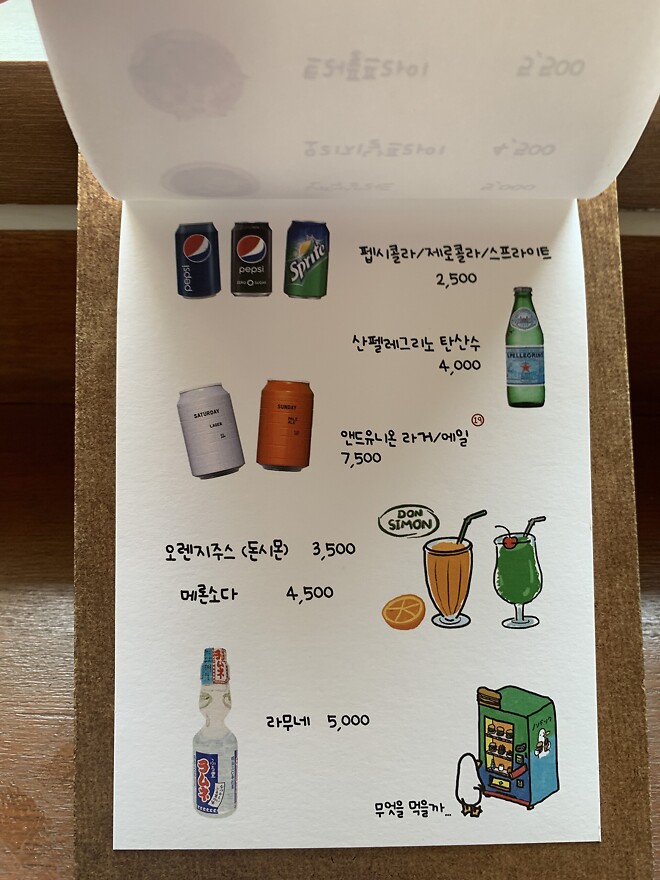 pepsi
pepsi
Sprite
펩시콜라/제로콜라/스프라이트
2,500
산펠레그리노 탄산수
4,000
S.PELLEGRINO
SATURDAY
LAGER
SUNDAY
PALE
ALE
19
앤드유니온 라거/에일
7,500
DON
SIMON
오렌지주스 (돈시몬) 3,500
메론소다 4,500
ラムネ
라무네 5,000
무엇을 먹을까...